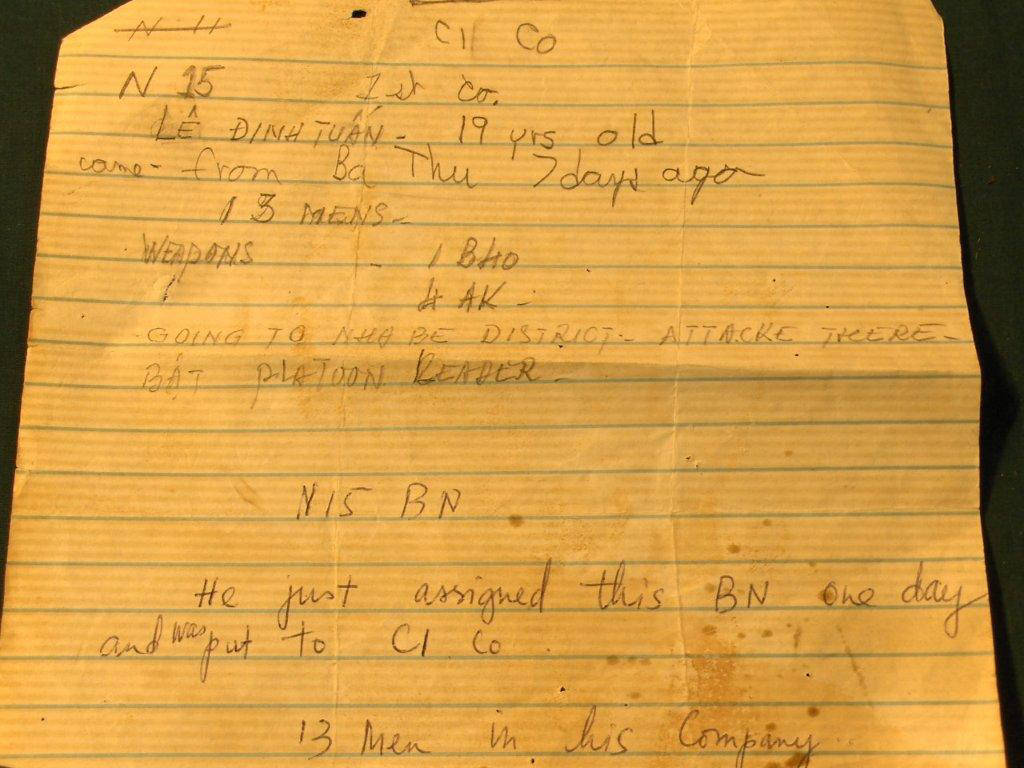 N 11
C1 Co
N 15 1st Co.
LÊ ĐINH TUÂN - 19 yrs old
came - from Ba Thu 7 days ago
13 MENS -
WEAPONS - 1 B40
4 AK -
- GOING TO NHA BE DISTRICT - ATTACKE THERE -
BÁT PLATOON LEADER -
N15 BN
He just assigned this BN one day
and was put to C1 Co
13 Men in his Company.